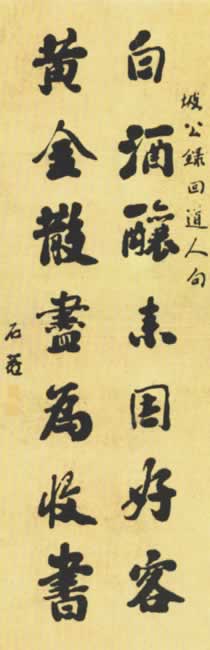 坡公錄回道人句
白酒釀來因好客
黃金散盡為收書
石菴